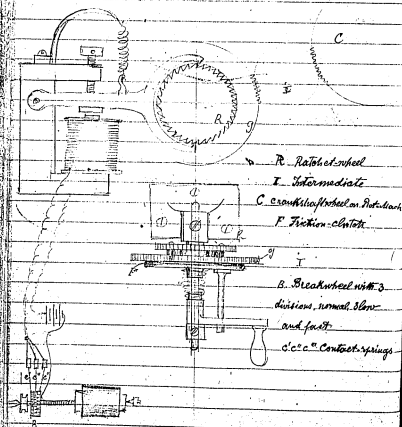 C
R
I
g
R Ratchet-wheel
I Intermediate
C crankshaft wheel on
F Friction-clutch
g
I
B Breakwheel with 3
divisions, normal, slow
and fast
c' c" c''' Contact springs
c' c" c'''
B